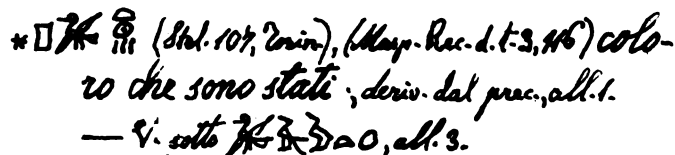 * (Stel. 107, Torin.), (Masp. Rec. d. t. 3, 116) colo-
ro che sono stati; deriv. dal prec., all. 1.
— V. sotto , all. 3.